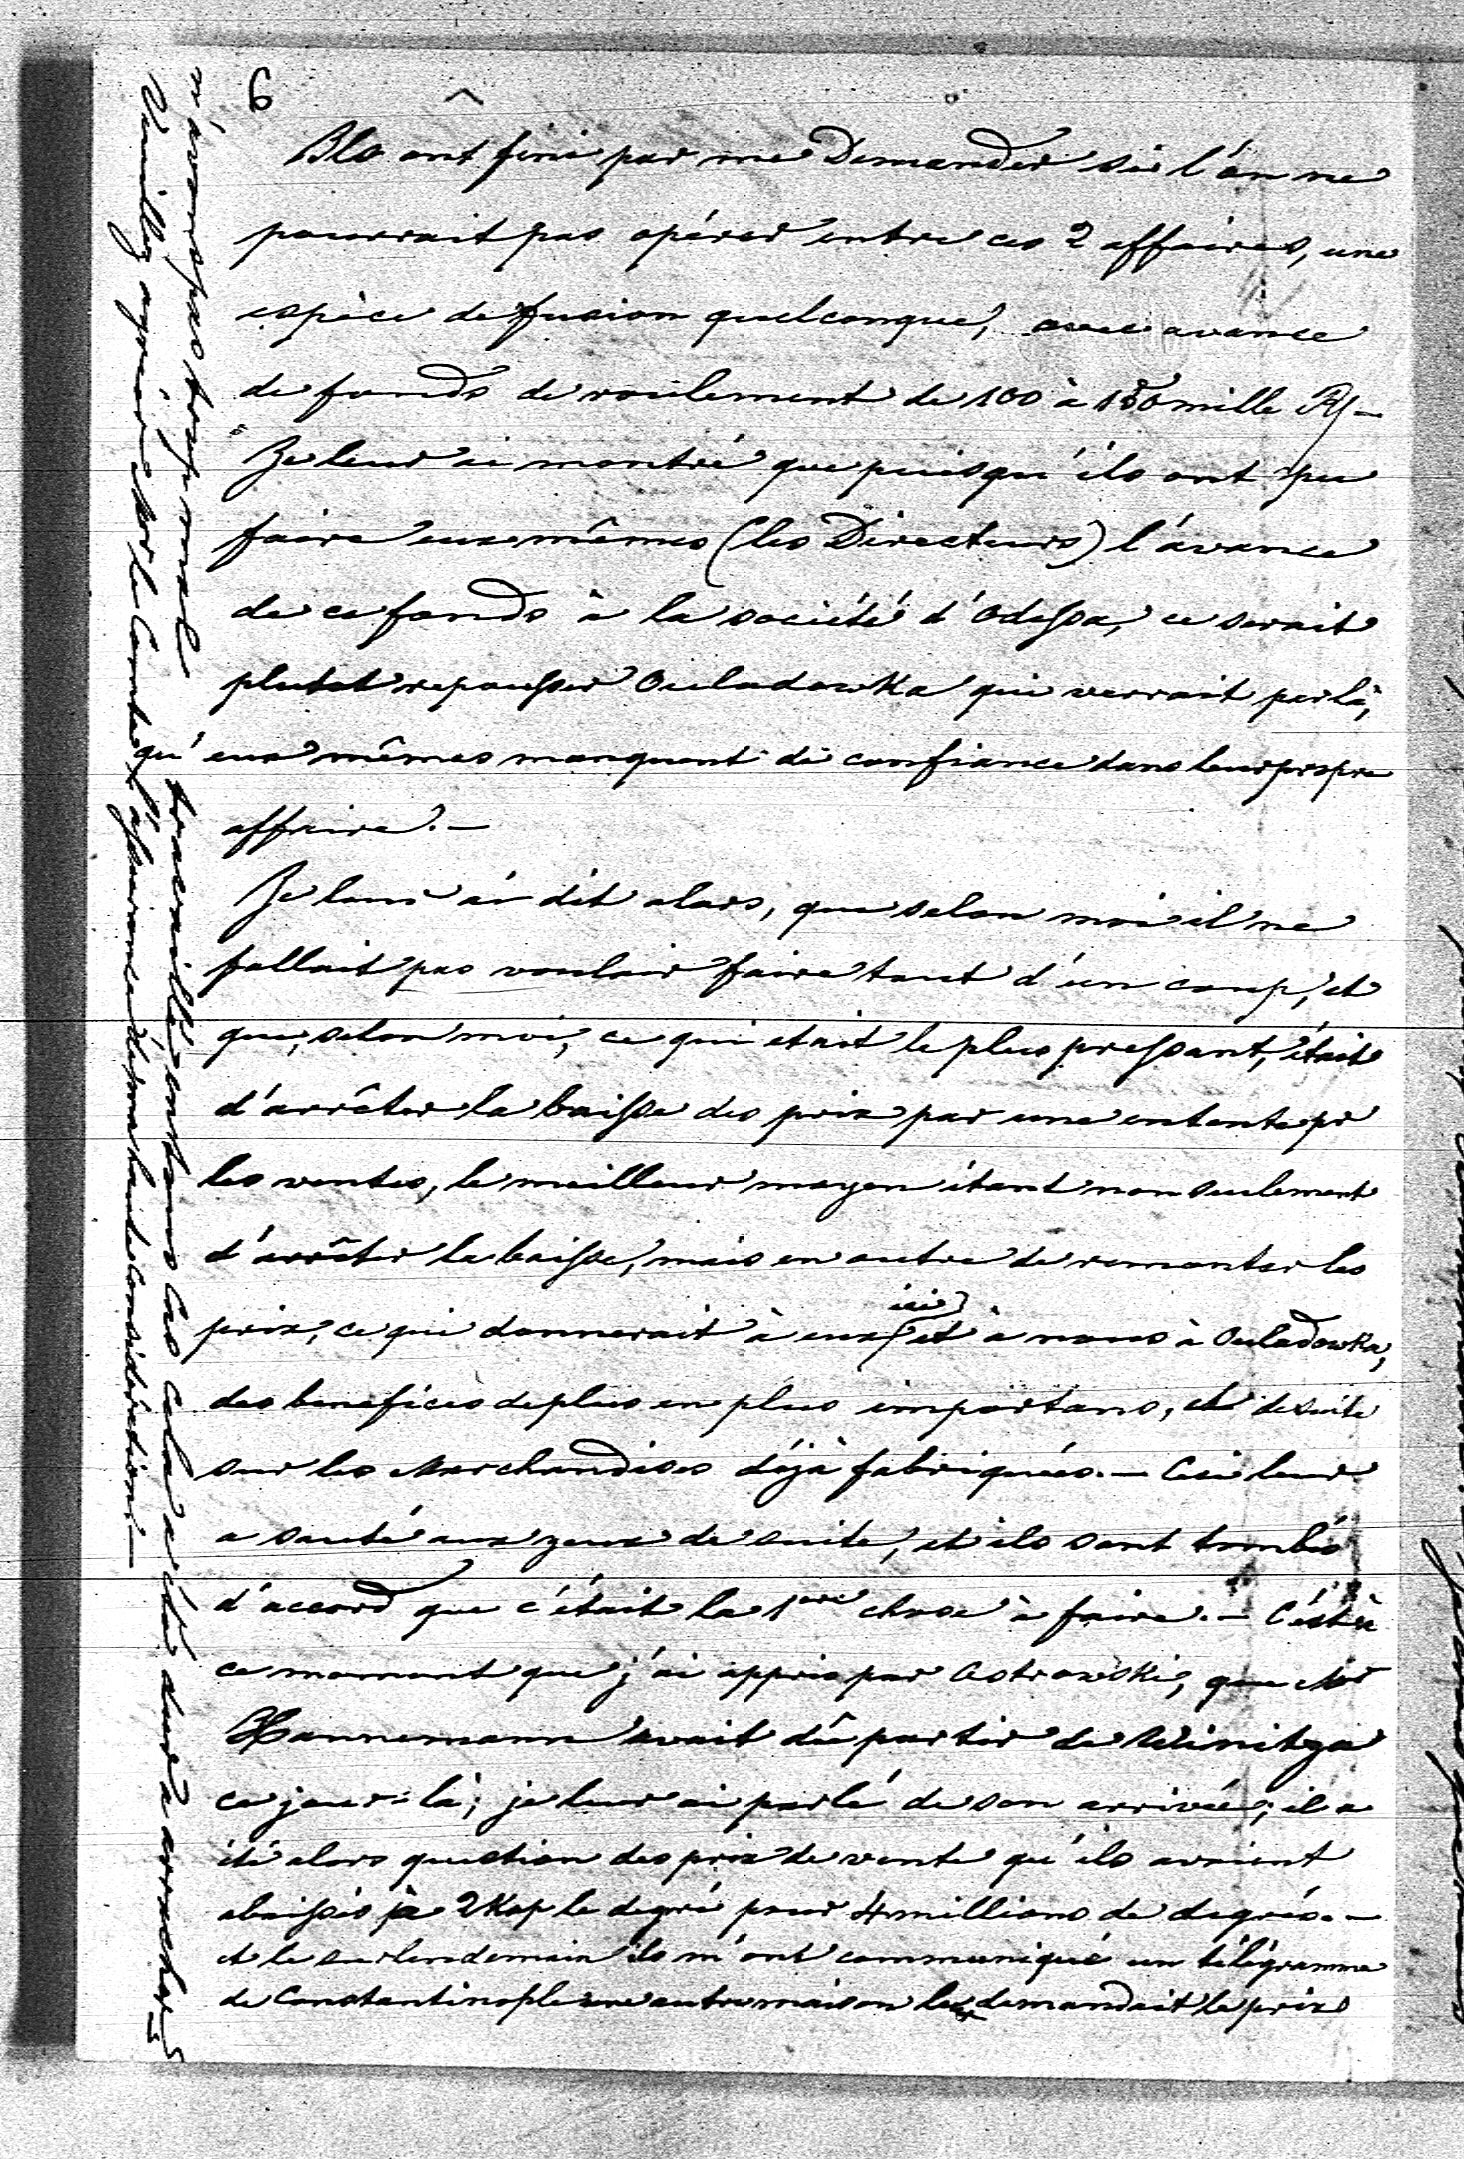 6
Ils ont fini par me Demander si l'on ne
pourrait pas opérer entre ces 2 affaires, une
espèce de fusion quelconque, avec avance
de fonds de roulement de 100 à 150 mille R/-
Je leur ai montré que puisqu'ils ont pu
faire eux mêmes (les Directeurs) l'avance
de ce fonds à la société d'Odessa, ce serait
plutot repousser Ouladowka qui verrait par là,
qu'eux mêmes manquent de confiance dans leur propre
affaire. —
Je leur ai dit alors, que selon moi il ne
fallait pas vouloir faire tout d'un coup, et
que, selon moi, ce qui etait le plus pressant, était
d'arrêter la baisse des prix par une entente pr
les ventes, le meilleur moyen étant non seulement
d'arrêter la baisse, mais en outre de remonter les
prix, ce qui donnerait à eux ici et à nous à Ouladowka,
des benefices de plus en plus importans, et de suite
sur les Marchandises déjà fabriquées. — Ceci leur
a sauté aux yeux de suite, et ils sont tombés
d'accord que c'était la 1ere chose à faire. — C'est à
ce moment que j'ai appris par Ostrowski, que Mr
Hannemann avait dû partir de Winitza
ce jour-là; je leur ai parlé de son arrivée; il a
été alors question des prix de vente qu'ils avaient
abaissés à 2 Kop le degré pour 4 millions de degrés. —
et le surlendemain ils m'ont communiqué un télégramme
de Constantinople une autre maison les demandait le prix
n'avons pas trop mal travaillé, en tous cas cela a été dur à arracher —
Veuillez agréer Mor le Comte, l'assurance de ma haute considération —